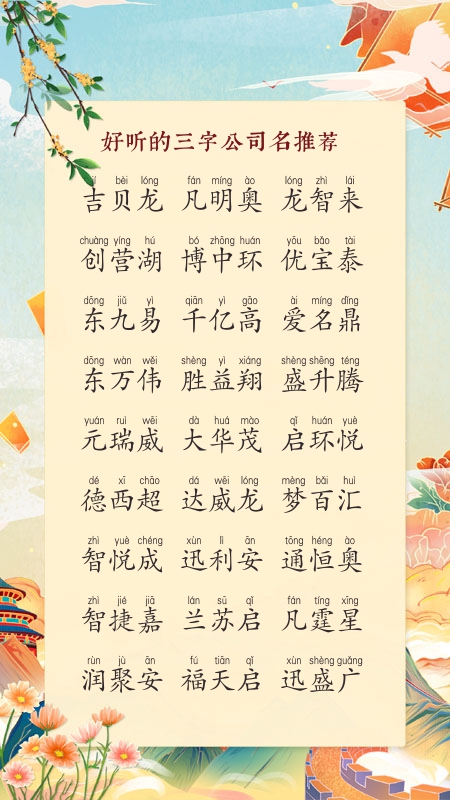 好听的三字公司名推荐
jí bèi lóng fán míng ào lóng zhì lái
吉贝龙 凡明奥 龙智来
chuàng yíng hú bó zhōng huán yōu bǎo tài
创营湖 博中环 优宝泰
dōng jiǔ yì qiān yì gāo ài míng dǐng
东九易 千亿高 爱名鼎
dōng wàn wěi shèng yì xiáng shèng shēng téng
东万伟 胜益翔 盛升腾
yuán ruì wēi dà huá mào qǐ huán yuè
元瑞威 大华茂 启环悦
dé xī chāo dá wēi lóng mèng bǎi huì
德西超 达威龙 梦百汇
zhì yuè chéng xùn lì ān tōng héng ào
智悦成 迅利安 通恒奥
zhì jié jiā lán sū qǐ fán tíng xīng
智捷嘉 兰苏启 凡霆星
rùn jù ān fú tiān qǐ xùn shèng guǎng
润聚安 福天启 迅盛广